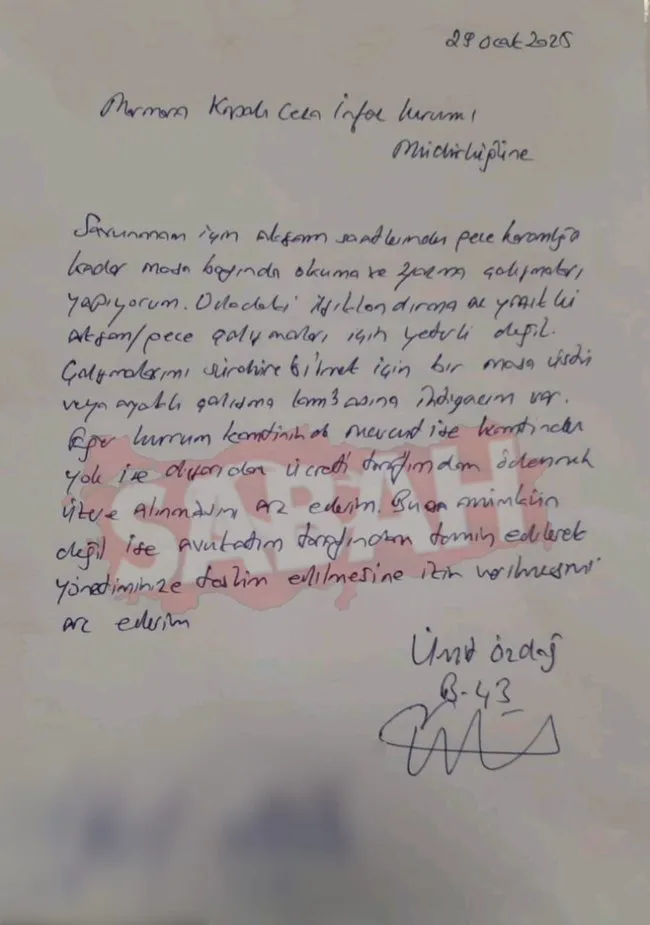 29 Ocak 2025
Marmara Kapalı Ceza İnfaz kurumı
Müdürlüğüne
Savunmam için akşam saatlerinden gece karanlığı
kadar masa başında okuma ve yazma çalışmaları
yapıyorum. Odadaki ışıklandırma
akşam/gece çalışmaları için yeterli değil.
Çalışmalarımı sürdürebilmek için bir masa üstü
veya ayaklı çalışma lambasına ihdiyacım var.
Eğer kurrum kantininde mevcud ise kantinden
yok ise dışarıdan ücreti tarafımdan ödenmek
üzere alınmasını arz ederim. Bu mümkün
değil ise avukatım tarafından temin edilerek
yönediminize teslim edilmesine izin verilmesini
arz ederim
Ümit Özdağ
B-43
SABAH